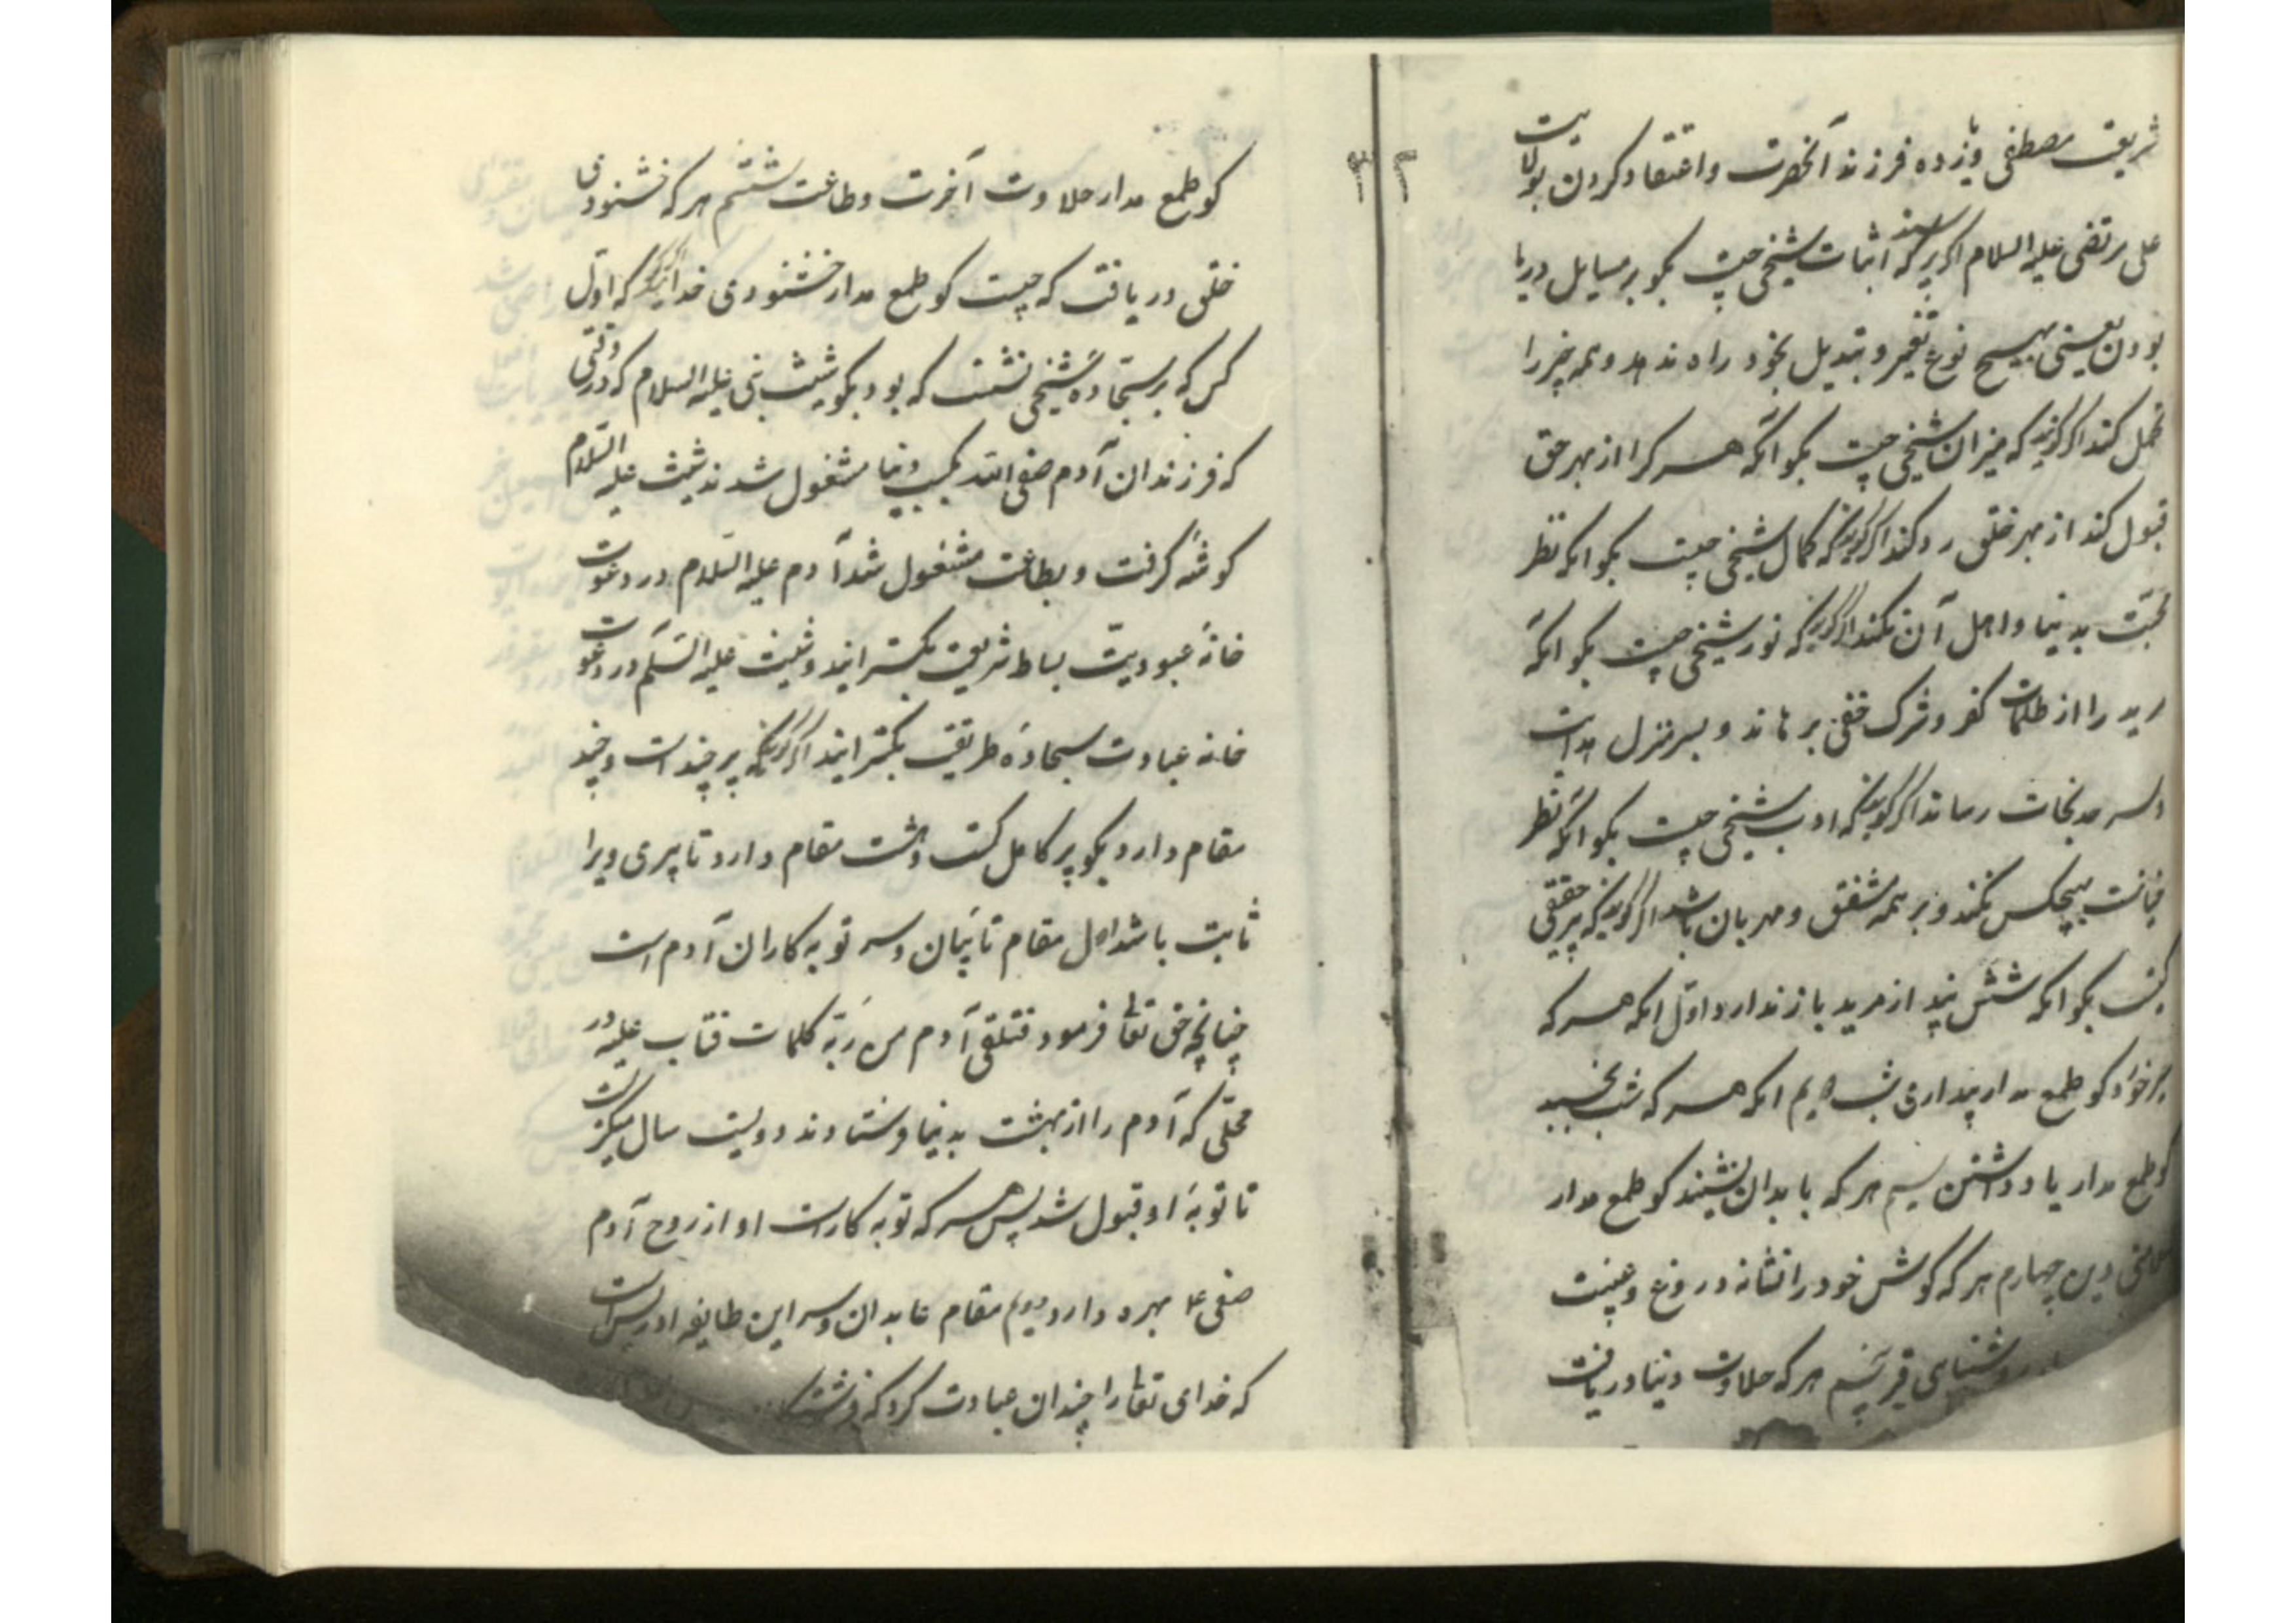 شریعت مصطفی و یازده فرزند آنحضرت و اعتقاد کردن بولایت
علی مرتضی علیه السلام اگر پرسند که اثبات شیخی چیست بگو بر مسایل دریا
بودن یعنی بهیچ نوع تغیر و تبدیل بخود راه ندهد و همه چیز را
تحمل کند اگر گویند که میزان شیخی چیست بگو آنکه هر کرا از بهر حق
قبول کند از بهر خلق رد کند اگر گویند که کمال شیخی چیست بگو انکه نظر
محبّت بدنیا و اهل آن نکند اگر گویند که نور شیخی چیست بگو انکه
مرید را از ظلمات کفر و شرک خفی برهاند و بسر منزل هدایت
و سرحد نجات رساند اگر گویند که ادب شیخی چیست بگو آنکه نظر
خیانت بهیچکس نکند و بر همه مشفق و مهربان باشد اگر گویند که پیر حقیقی
کیست بگو انکه شش پند از مرید باز ندارد اوّل انکه هر که
پر خورد کو طمع مدار بیداری شب دویم انکه هر که شب بخسبد
کو طمع مدار یاد داشتن سیم هر که با بدان نشیند کو طمع مدار
سلامتی دین چهارم هر که کوش خود را نشانه دروغ و غیبت
روشنایی قبر پنجم هر که حلاوت دنیا دریافت
۳۲
کو طمع مدار حلاوت آخرت و طاعت ششم هر که خشنودی
خلق دریافت که چیست کو طمع مدار خشنودی خدا اگر گویند که اوّل
کس که بر سجّاده شیخی نشست که بود بگو شیث نبی علیه السلام که در وقتی
که فرزندان آدم صفی الله بکسب دنیا مشغول شدند شیث علیه السّلام
کوشه گرفت و بطاعت مشغول شد آدم علیه السّلام در دعوت
خانهٔ عبودیّت بساط شریعت بگسترانید و شیث علیه السّلم در دعوت
خانه عبادت سجادهٔ طریقت بگسترانید اگر گویند که پیر چند است و چند
مقام دارد بگو پیر کامل کشت و هشت مقام دارد تا پیری ویرا
ثابت باشد اول مقام تائبان و سر توبه کاران آدم است
چنانچه حق تعالی فرمود فتلقی آدم من ربّه کلمات فتاب علیه در
محلّی که آدم را از بهشت بدنیا فرستادند دویست سال میگریست
تا توبهٔ او قبول شد پس هر که توبه کار است او از روح آدم
صفی ع‍ بهره دارد دویم مقام عابدان و سر این طایفه ادریس است
که خدای تعالی را چندان عبادت کرد که فرشتگان